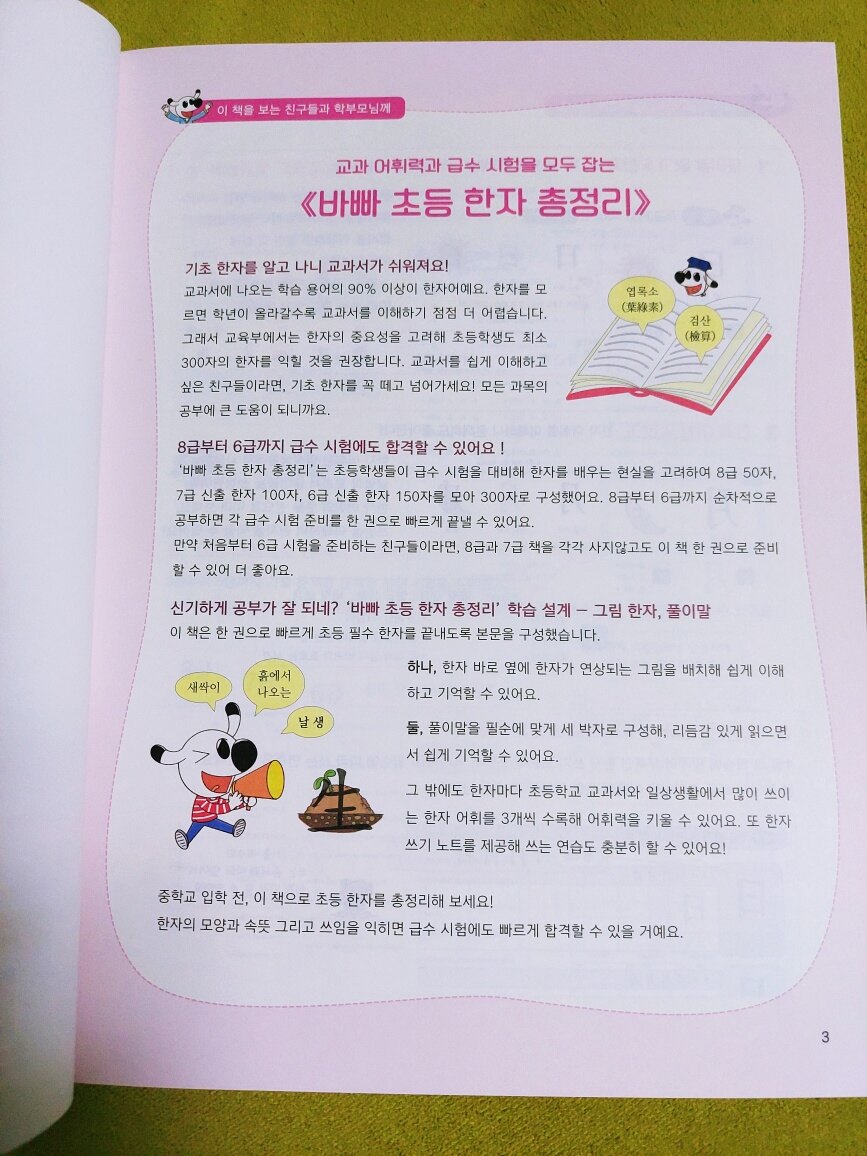 이 책을 보는 친구들과 학부모님께
교과 어휘력과 급수 시험을 모두 잡는
《바빠 초등 한자 총정리》
기초 한자를 알고 나니 교과서가 쉬워져요!
교과서에 나오는 학습 용어의 90% 이상이 한자어예요. 한자를 모
르면 학년이 올라갈수록 교과서를 이해하기 점점 더 어렵습니다.
그래서 교육부에서는 한자의 중요성을 고려해 초등학생도 최소
300자의 한자를 익힐 것을 권장합니다. 교과서를 쉽게 이해하고
싶은 친구들이라면, 기초 한자를 꼭 떼고 넘어가세요! 모든 과목의
공부에 큰 도움이 되니까요.
엽록소
(葉綠素)
검산
(檢算)
8급부터 6급까지 급수 시험에도 합격할 수 있어요 !
‘바빠 초등 한자 총정리’는 초등학생들이 급수 시험을 대비해 한자를 배우는 현실을 고려하여 8급 50자,
7급 신출 한자 100자, 6급 신출 한자 150자를 모아 300자로 구성했어요. 8급부터 6급까지 순차적으로
공부하면 각 급수 시험 준비를 한 권으로 빠르게 끝낼 수 있어요.
만약 처음부터 6급 시험을 준비하는 친구들이라면, 8급과 7급 책을 각각 사지않고도 이 책 한 권으로 준비
할 수 있어 더 좋아요.
신기하게 공부가 잘 되네? ‘바빠 초등 한자 총정리’ 학습 설계 – 그림 한자, 풀이말
이 책은 한 권으로 빠르게 초등 필수 한자를 끝내도록 본문을 구성했습니다.
새싹이
흙에서
나오는
날 생
生
하나, 한자 바로 옆에 한자가 연상되는 그림을 배치해 쉽게 이해
하고 기억할 수 있어요.
둘, 풀이말을 필순에 맞게 세 박자로 구성해, 리듬감 있게 읽으면
서 쉽게 기억할 수 있어요.
그 밖에도 한자마다 초등학교 교과서와 일상생활에서 많이 쓰이
는 한자 어휘를 3개씩 수록해 어휘력을 키울 수 있어요. 또 한자
쓰기 노트를 제공해 쓰는 연습도 충분히 할 수 있어요!
중학교 입학 전, 이 책으로 초등 한자를 총정리해 보세요!
한자의 모양과 속뜻 그리고 쓰임을 익히면 급수 시험에도 빠르게 합격할 수 있을 거예요.
3